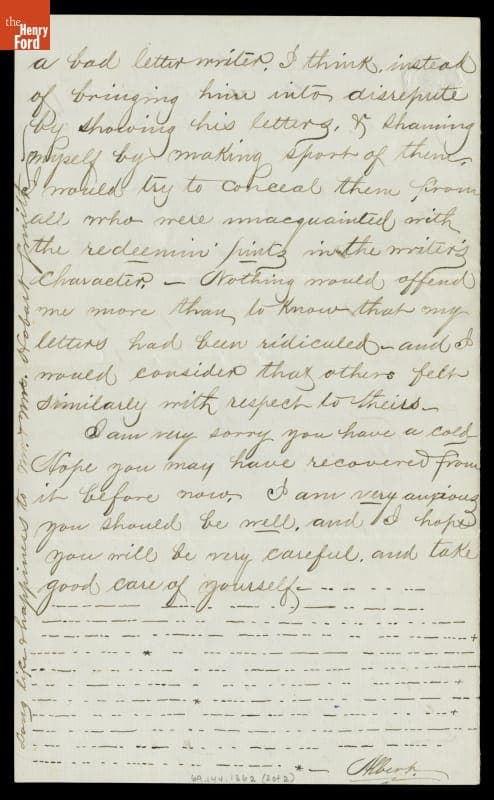 the
Henry
Ford
a bad letter writer. I think, instead
of bringing him into disrepute
by showing his letters, & shaming
myself by making sport of them,
I would try to conceal them from
all who were unacquainted with
the redeemin' pints in the writer's
character. — Nothing would offend
me more than to know that my
letters had been ridiculed – and I
would consider that others felt
similarly with respect to theirs –
I am very sorry you have a cold
Hope you may have recovered from
it before now. I am very anxious
you should be well, and I hope
you will be very careful, and take
good care of yourself –
Albert.
Long life & happiness to Mr. & Mrs. Hobart
69.144.1362 (2 of 2)